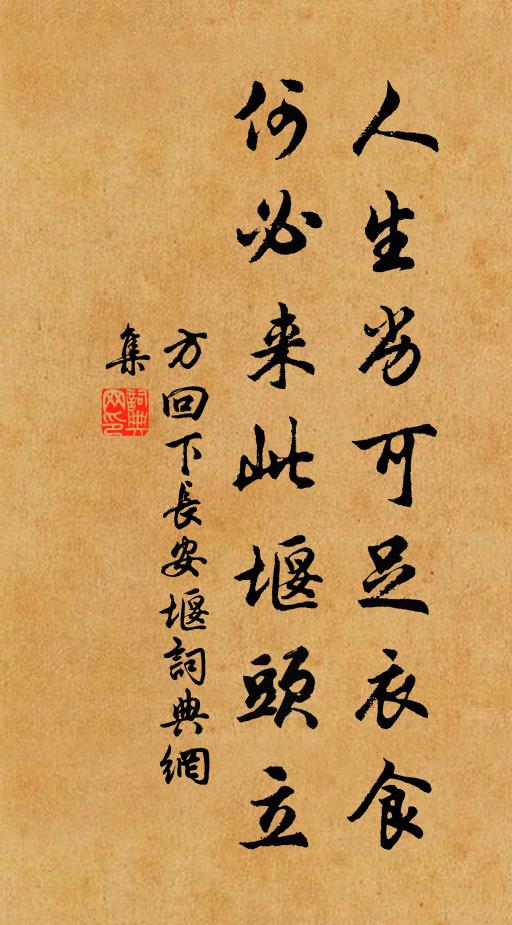 人生劣可足衣食
何必来此堰頭立
方回下長安堰詞典網
集
詞典網印